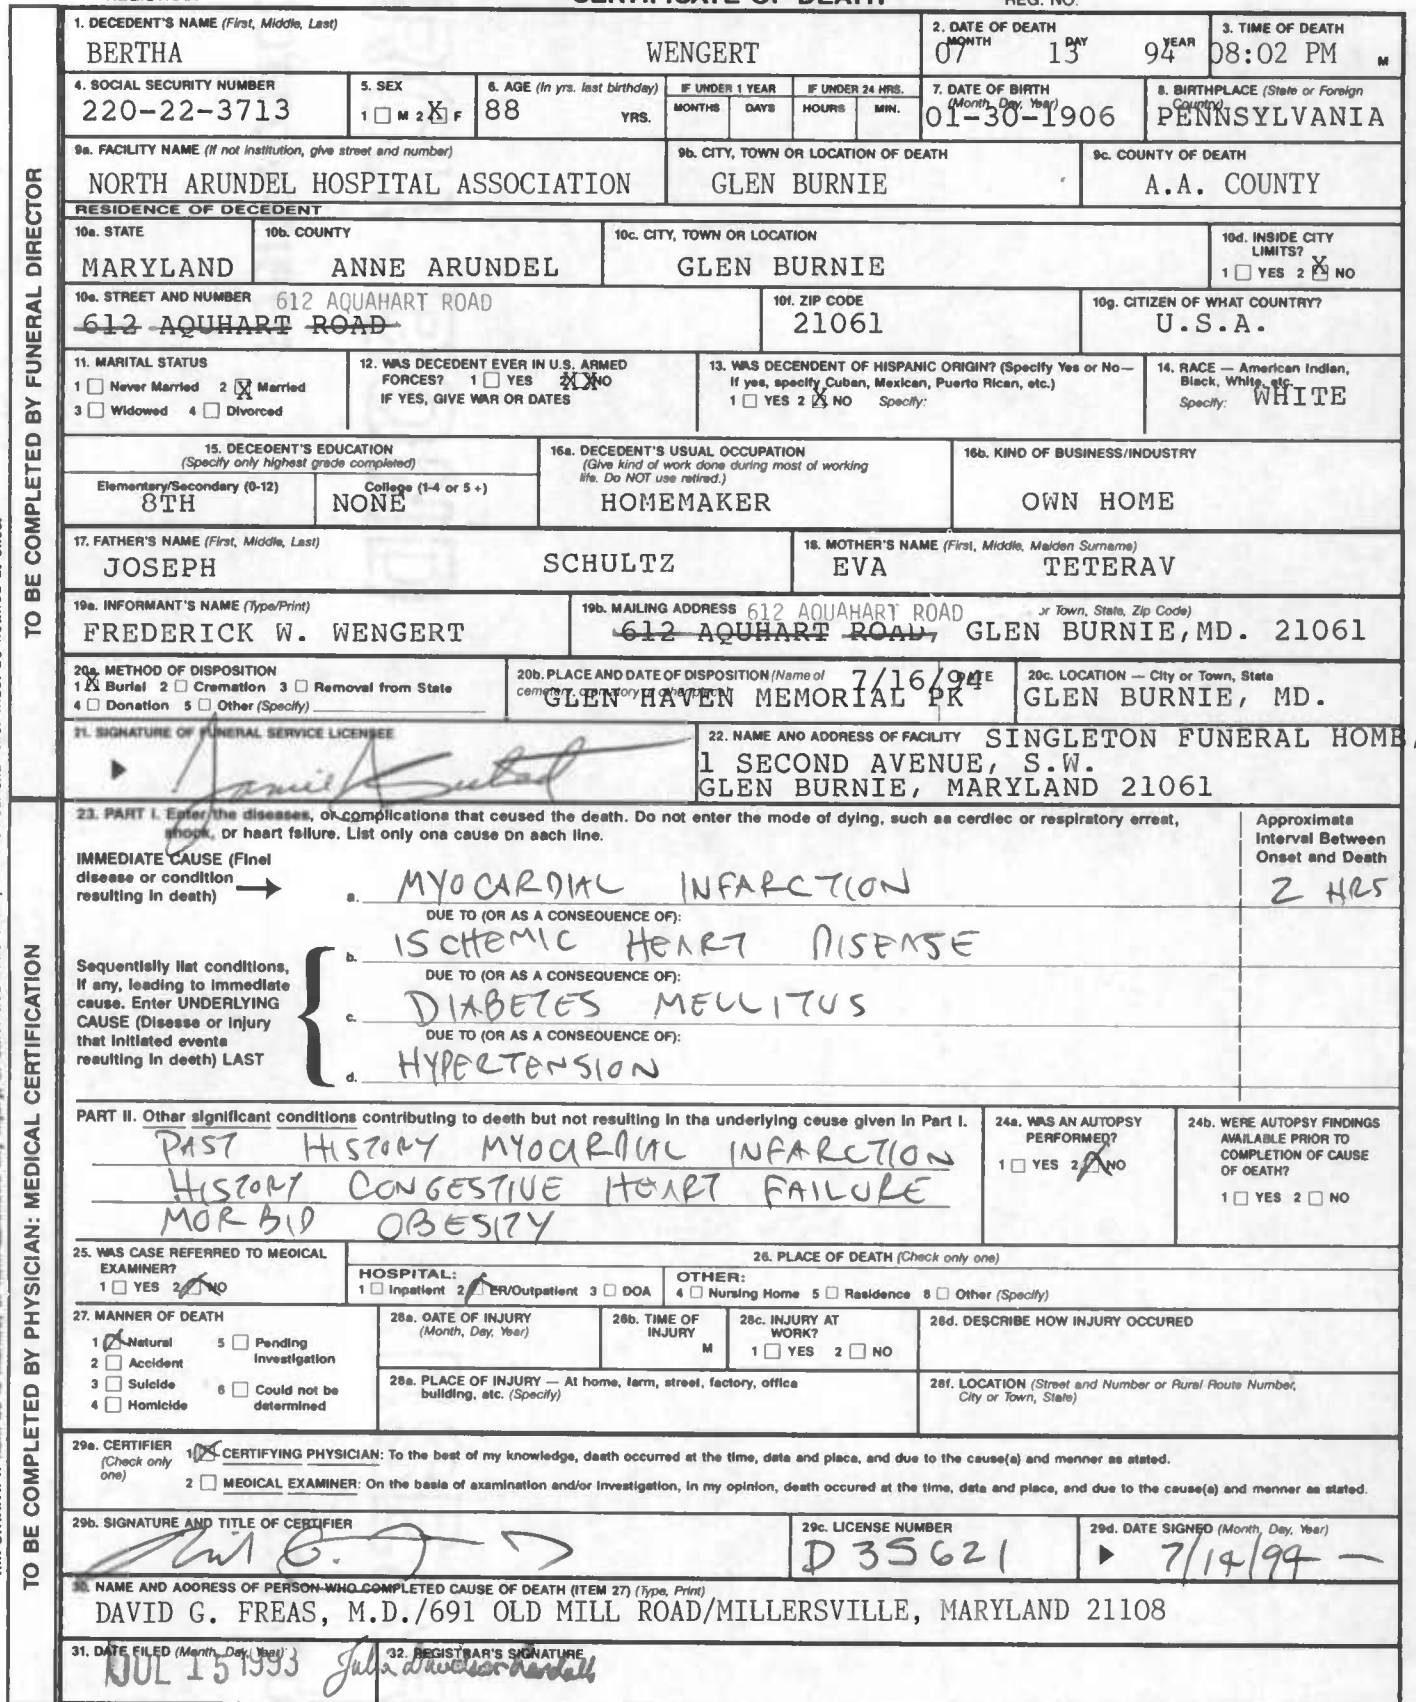 CERTIFICATE OF DEATH REG. NO.
1. DECEDENT'S NAME (First, Middle, Last)
BERTHA WENGERT
2. DATE OF DEATH
MONTH DAY YEAR
07 13 94
3. TIME OF DEATH
08:02 PM M
4. SOCIAL SECURITY NUMBER
220-22-3713
5. SEX
1 M 2 X F
6. AGE (In yrs. last birthday)
88 YRS.
IF UNDER 1 YEAR
MONTHS DAYS
IF UNDER 24 HRS.
HOURS MIN.
7. DATE OF BIRTH
(Month, Day, Year)
01-30-1906
8. BIRTHPLACE (State or Foreign
Country)
PENNSYLVANIA
9a. FACILITY NAME (If not institution, give street and number)
NORTH ARUNDEL HOSPITAL ASSOCIATION
9b. CITY, TOWN OR LOCATION OF DEATH
GLEN BURNIE
9c. COUNTY OF DEATH
A.A. COUNTY
RESIDENCE OF DECEDENT
10a. STATE
MARYLAND
10b. COUNTY
ANNE ARUNDEL
10c. CITY, TOWN OR LOCATION
GLEN BURNIE
10d. INSIDE CITY
LIMITS?
1 YES 2 X NO
10e. STREET AND NUMBER 612 AQUAHART ROAD
612 AQUHART ROAD
10f. ZIP CODE
21061
10g. CITIZEN OF WHAT COUNTRY?
U.S.A.
11. MARITAL STATUS
1 Never Married 2 X Married
3 Widowed 4 Divorced
12. WAS DECEDENT EVER IN U.S. ARMED
FORCES? 1 YES 2 XX NO
IF YES, GIVE WAR OR DATES
13. WAS DECENDENT OF HISPANIC ORIGIN? (Specify Yes or No—
If yes, specify Cuban, Mexican, Puerto Rican, etc.)
1 YES 2 X NO Specify:
14. RACE — American Indian,
Black, White, etc.
Specify: WHITE
15. DECEDENT'S EDUCATION
(Specify only highest grade completed)
Elementary/Secondary (0-12) College (1-4 or 5+)
8TH NONE
16a. DECEDENT'S USUAL OCCUPATION
(Give kind of work done during most of working
life. Do NOT use retired.)
HOMEMAKER
16b. KIND OF BUSINESS/INDUSTRY
OWN HOME
17. FATHER'S NAME (First, Middle, Last)
JOSEPH SCHULTZ
18. MOTHER'S NAME (First, Middle, Maiden Surname)
EVA TETERAV
19a. INFORMANT'S NAME (Type/Print)
FREDERICK W. WENGERT
19b. MAILING ADDRESS 612 AQUAHART ROAD or Town, State, Zip Code)
612 AQUHART ROAD, GLEN BURNIE,MD. 21061
20a. METHOD OF DISPOSITION
1 X Burial 2 Cremation 3 Removal from State
4 Donation 5 Other (Specify)
20b. PLACE AND DATE OF DISPOSITION (Name of
cemetery, crematory or other place) 7/16/94 DATE
GLEN HAVEN MEMORIAL PK
20c. LOCATION — City or Town, State
GLEN BURNIE, MD.
21. SIGNATURE OF FUNERAL SERVICE LICENSEE
22. NAME AND ADDRESS OF FACILITY SINGLETON FUNERAL HOME,
1 SECOND AVENUE, S.W.
GLEN BURNIE, MARYLAND 21061
TO BE COMPLETED BY FUNERAL DIRECTOR
23. PART I. Enter the diseases, or complications that caused the death. Do not enter the mode of dying, such as cardiac or respiratory arrest,
shock, or heart failure. List only one cause on each line.
Approximate
Interval Between
Onset and Death
IMMEDIATE CAUSE (Final
disease or condition
resulting in death)
a. MYOCARDIAL INFARCTION 2 HRS
DUE TO (OR AS A CONSEQUENCE OF):
b. ISCHEMIC HEART DISEASE
DUE TO (OR AS A CONSEQUENCE OF):
c. DIABETES MELLITUS
DUE TO (OR AS A CONSEQUENCE OF):
d. HYPERTENSION
Sequentially list conditions,
if any, leading to immediate
cause. Enter UNDERLYING
CAUSE (Disease or injury
that initiated events
resulting in death) LAST
PART II. Other significant conditions contributing to death but not resulting in the underlying cause given in Part I.
PAST HISTORY MYOCARDIAL INFARCTION
HISTORY CONGESTIVE HEART FAILURE
MORBID OBESITY
24a. WAS AN AUTOPSY
PERFORMED?
1 YES 2 NO
24b. WERE AUTOPSY FINDINGS
AVAILABLE PRIOR TO
COMPLETION OF CAUSE
OF DEATH?
1 YES 2 NO
25. WAS CASE REFERRED TO MEDICAL
EXAMINER?
1 YES 2 NO
26. PLACE OF DEATH (Check only one)
HOSPITAL:
1 Inpatient 2 ER/Outpatient 3 DOA
OTHER:
4 Nursing Home 5 Residence 6 Other (Specify)
27. MANNER OF DEATH
1 Natural 5 Pending
Investigation
2 Accident
3 Suicide 6 Could not be
determined
4 Homicide
28a. DATE OF INJURY
(Month, Day, Year)
28b. TIME OF
INJURY
M
28c. INJURY AT
WORK?
1 YES 2 NO
28d. DESCRIBE HOW INJURY OCCURED
28e. PLACE OF INJURY — At home, farm, street, factory, office
building, etc. (Specify)
28f. LOCATION (Street and Number or Rural Route Number,
City or Town, State)
29a. CERTIFIER
(Check only
one)
1 CERTIFYING PHYSICIAN: To the best of my knowledge, death occurred at the time, date and place, and due to the cause(s) and manner as stated.
2 MEDICAL EXAMINER: On the basis of examination and/or investigation, in my opinion, death occured at the time, date and place, and due to the cause(s) and manner as stated.
29b. SIGNATURE AND TITLE OF CERTIFIER
29c. LICENSE NUMBER
D35621
29d. DATE SIGNED (Month, Day, Year)
7/14/94
30. NAME AND ADDRESS OF PERSON WHO COMPLETED CAUSE OF DEATH (ITEM 27) (Type, Print)
DAVID G. FREAS, M.D./691 OLD MILL ROAD/MILLERSVILLE, MARYLAND 21108
31. DATE FILED (Month, Day, Year)
JUL 15 1993
32. REGISTRAR'S SIGNATURE
TO BE COMPLETED BY PHYSICIAN: MEDICAL CERTIFICATION